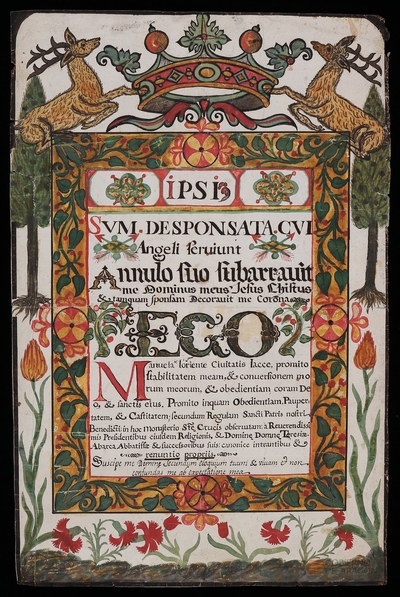 IPSI
SVM. DESPONSATA. CVI
Angeli seruiunt
Annulo suo subarrauit
me Dominus meus Iesus Christus
& tamquam sponsam Decorauit me Corona
EGO
Manuela loriente Ciuitatis Iacce, promito
stabilitatem meam, & conuersionem mo
rum meorum, & obedientiam coram De
o, & sanctis eius. Promito inquam Obedientiam, Pauper
tatem, & Castitatem, secundum Regulam Sancti Patris nostri
Benedicti in hoc monasterio Stæ Crucis obseruatam: a Reuerendissi
mis Presidentibus eiusdem Religionis, & Dominæ Domnæ Teresiæ
Abarca Abbatisse & succesoribus suis: canonice intrantibus &
renuntio propriis.
Suscipe me Domine secundum eloquium tuum & viuam & non
confundas me ab expectatione mea